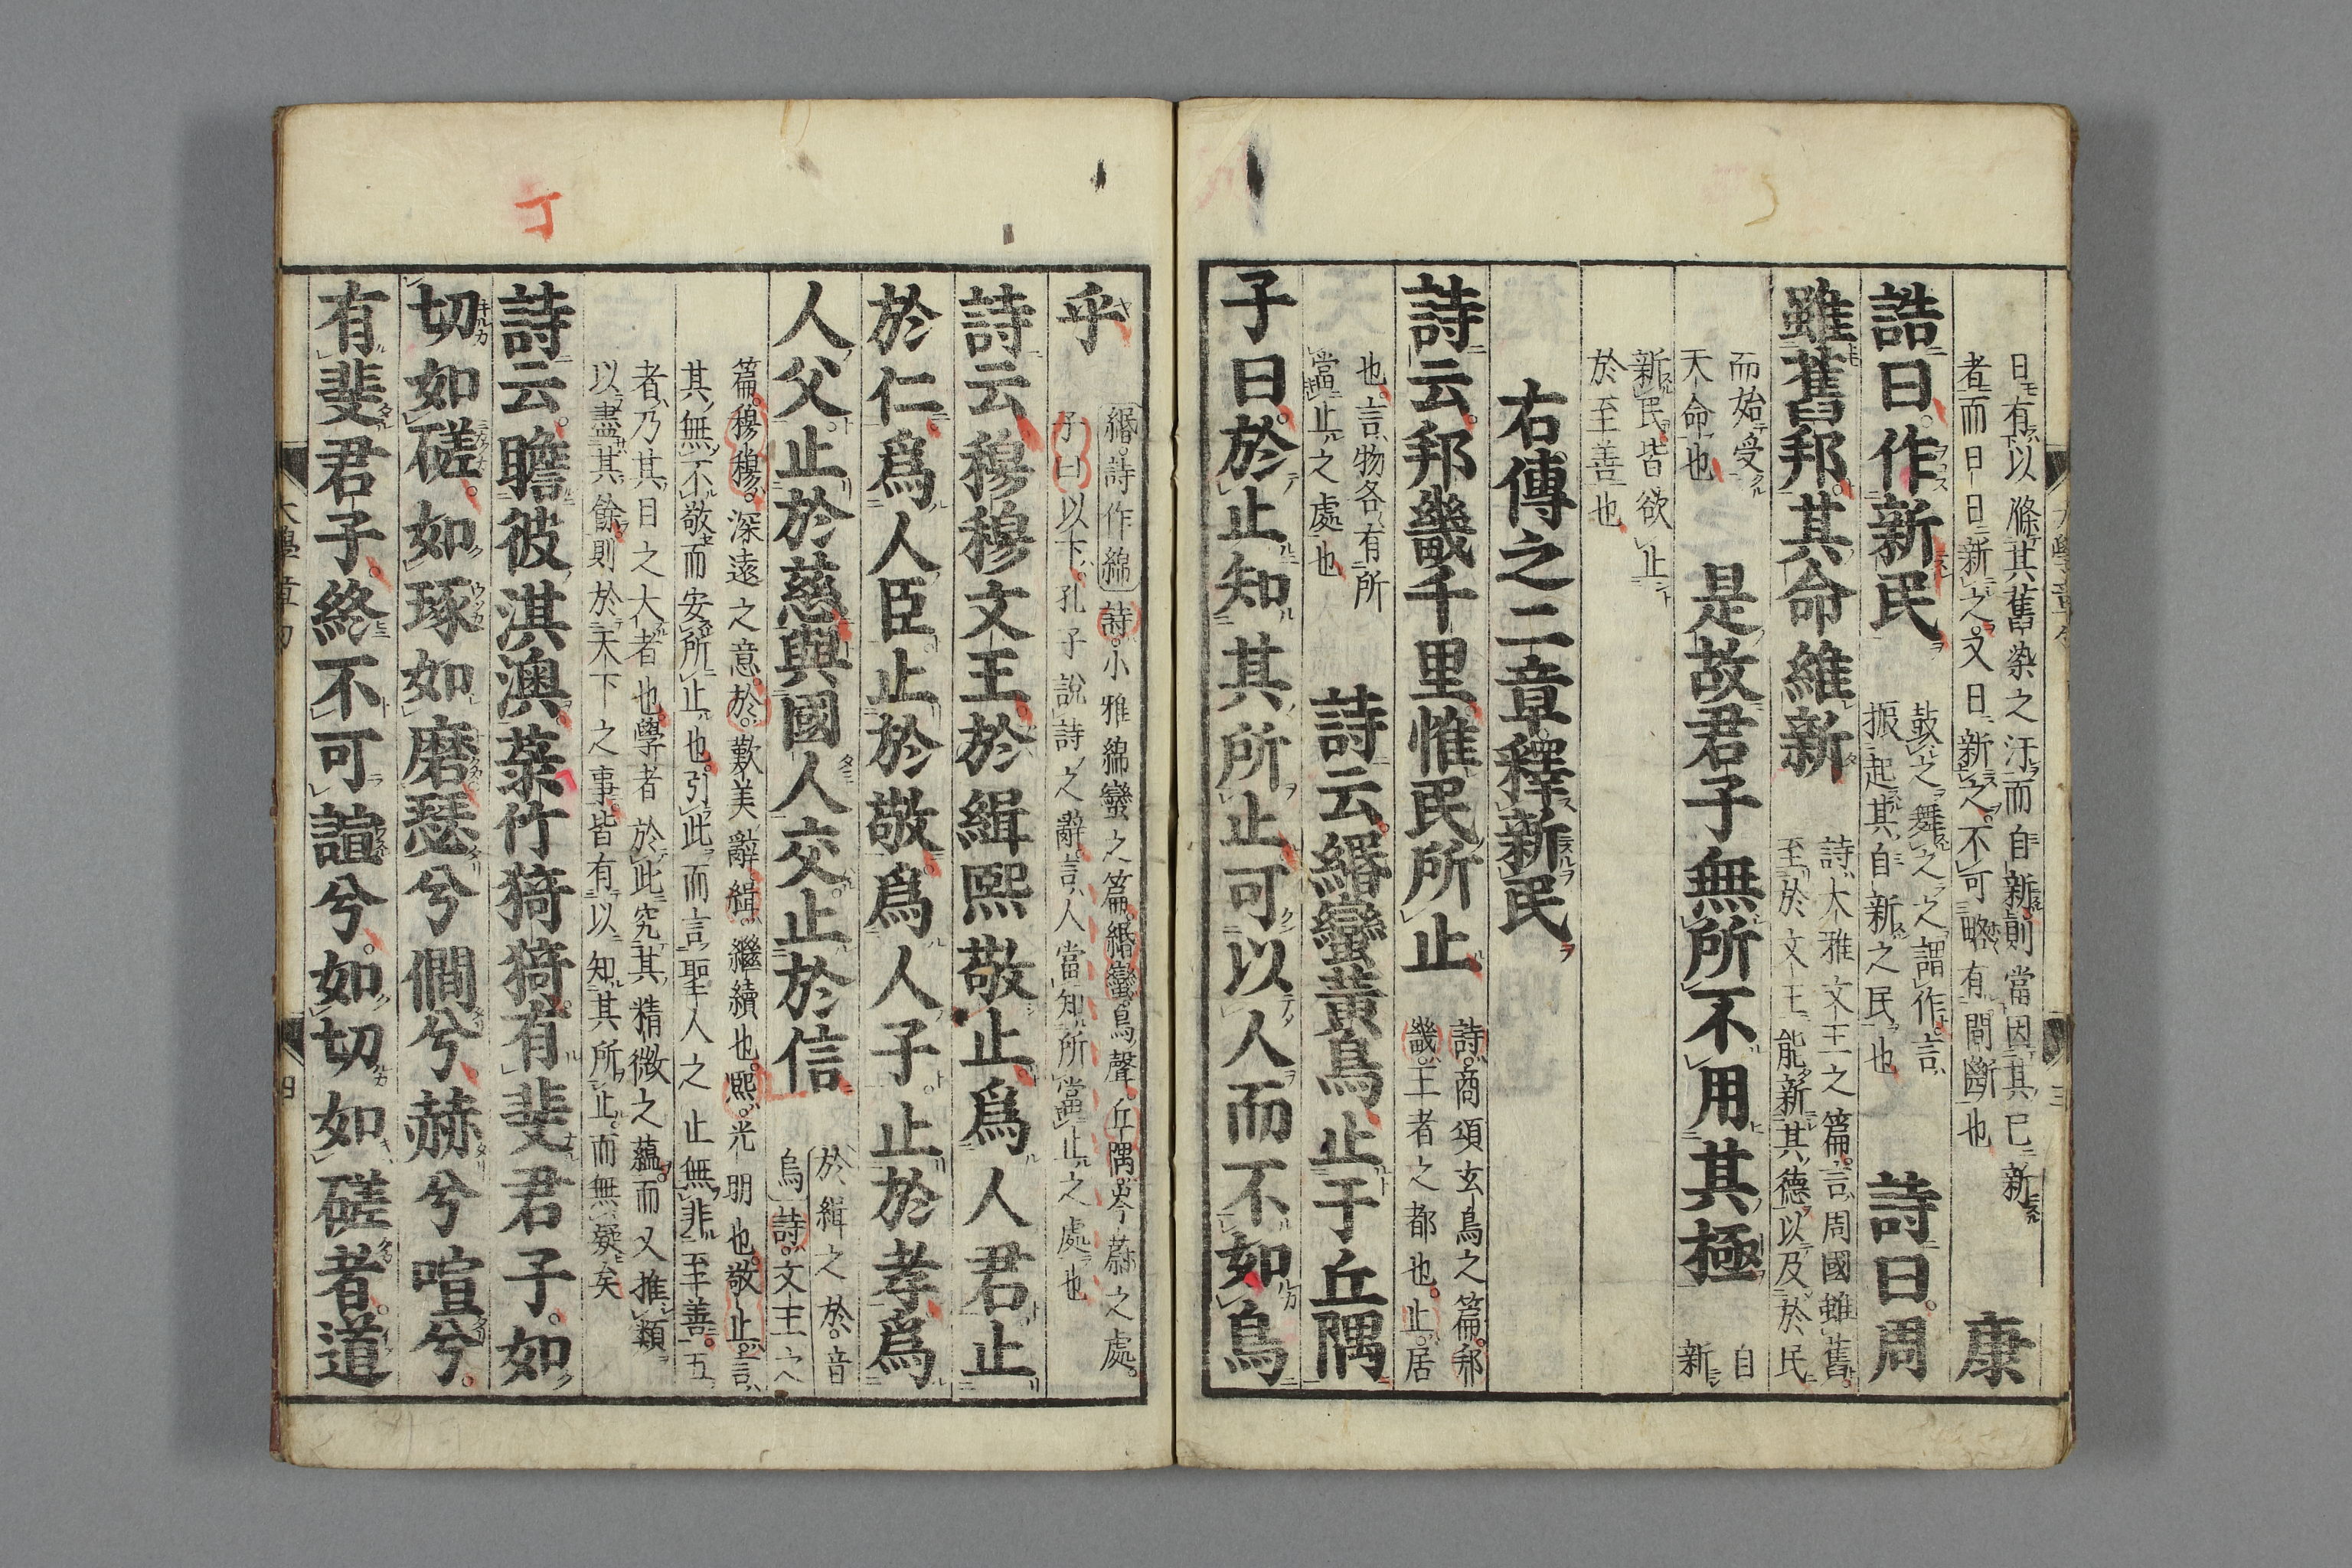 日有以滌其舊染之汙而自新則當因其已新
者而日日新之又日新之不可略有間斷也
康
誥曰作新民
鼓之舞之之謂作言
振起其自新之民也
詩曰周
雖舊邦其命維新
詩大雅文王之篇言周國雖舊
至於文王能新其德以及於民
而始受
天命也
是故君子無所不用其極
自
新
新民皆欲止
於至善也
右傳之二章釋新民
詩云邦畿千里惟民所止
詩商頌玄鳥之篇邦
畿王者之都也止居
也言物各有所
當止之處也
詩云緡蠻黃鳥止于丘隅
子曰於止知其所止可以人而不如鳥
乎
緡詩作綿詩小雅綿蠻之篇緡蠻鳥聲丘隅岑蔚之處
子曰以下孔子說詩之辭言人當知所當止之處也
詩云穆穆文王於緝熙敬止爲人君止
於仁爲人臣止於敬爲人子止於孝爲
人父止於慈與國人交止於信
於緝之於音
烏詩文王之
篇穆穆深遠之意於歎美辭緝繼續也熙光明也敬止言
其無不敬而安所止也引此而言聖人之止無非至善五
者乃其目之大者也學者於此究其精微之蘊而又推類
以盡其餘則於天下之事皆有以知其所止而無疑矣
詩云瞻彼淇澳菉竹猗猗有斐君子如
切如磋如琢如磨瑟兮僩兮赫兮喧兮
有斐君子終不可諠兮如切如磋者道
大學章句
四